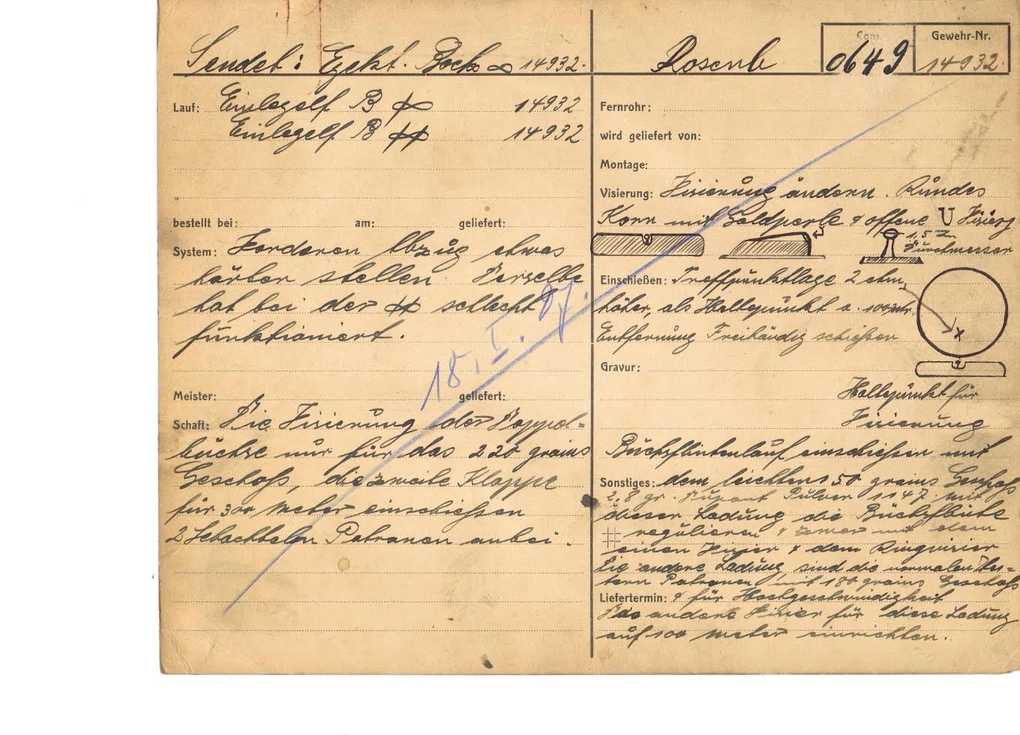 Sendet: Ejekt. Bock 14932.
Rosenb
Com.
0649
Gewehr-Nr.
14932.
Lauf: Einlegelf B 14932
Einlegelf B 14932
bestellt bei: am: geliefert:
System: Vorderen Abzug etwas
härter stellen. Derselbe
hat bei der schlecht
funktioniert.
18. I. 
Meister: geliefert:
Schaft: Die Visierung der Doppel=
büchse nur für das 220 grains
Geschoss, die zweite Klappe
für 300 Meter einschiessen
2 Schachteln Patronen anbei.
Fernrohr:
wird geliefert von:
Montage:
Visierung: Visierung ändern. Rundes
Korn mit Goldperle & offene U Visierg
1,5 Z
Durchmesser
Einschießen: Treffpunktlage 2 ctm,
höher, als Haltepunkt a. 100 mtr.
Entfernung Freihändig schiessen
Gravur:
Haltepunkt für
Visierung
Büchsflintenlauf einschiessen mit
Sonstiges: dem leichten 150 grains Geschoss
2,8 gr. Dupont Pulver 1147. mit
dieser Ladung die Büchsflinte
regulieren & zwar mit dem
einen Visier & dem Ringvisier
Die andere Ladung sind die normalen
Patronen mit 180 grains Geschoss
Liefertermin: & für Hochgeschwindigkeit
Das andere Visier für diese Ladung
auf 100 Meter einrichten.